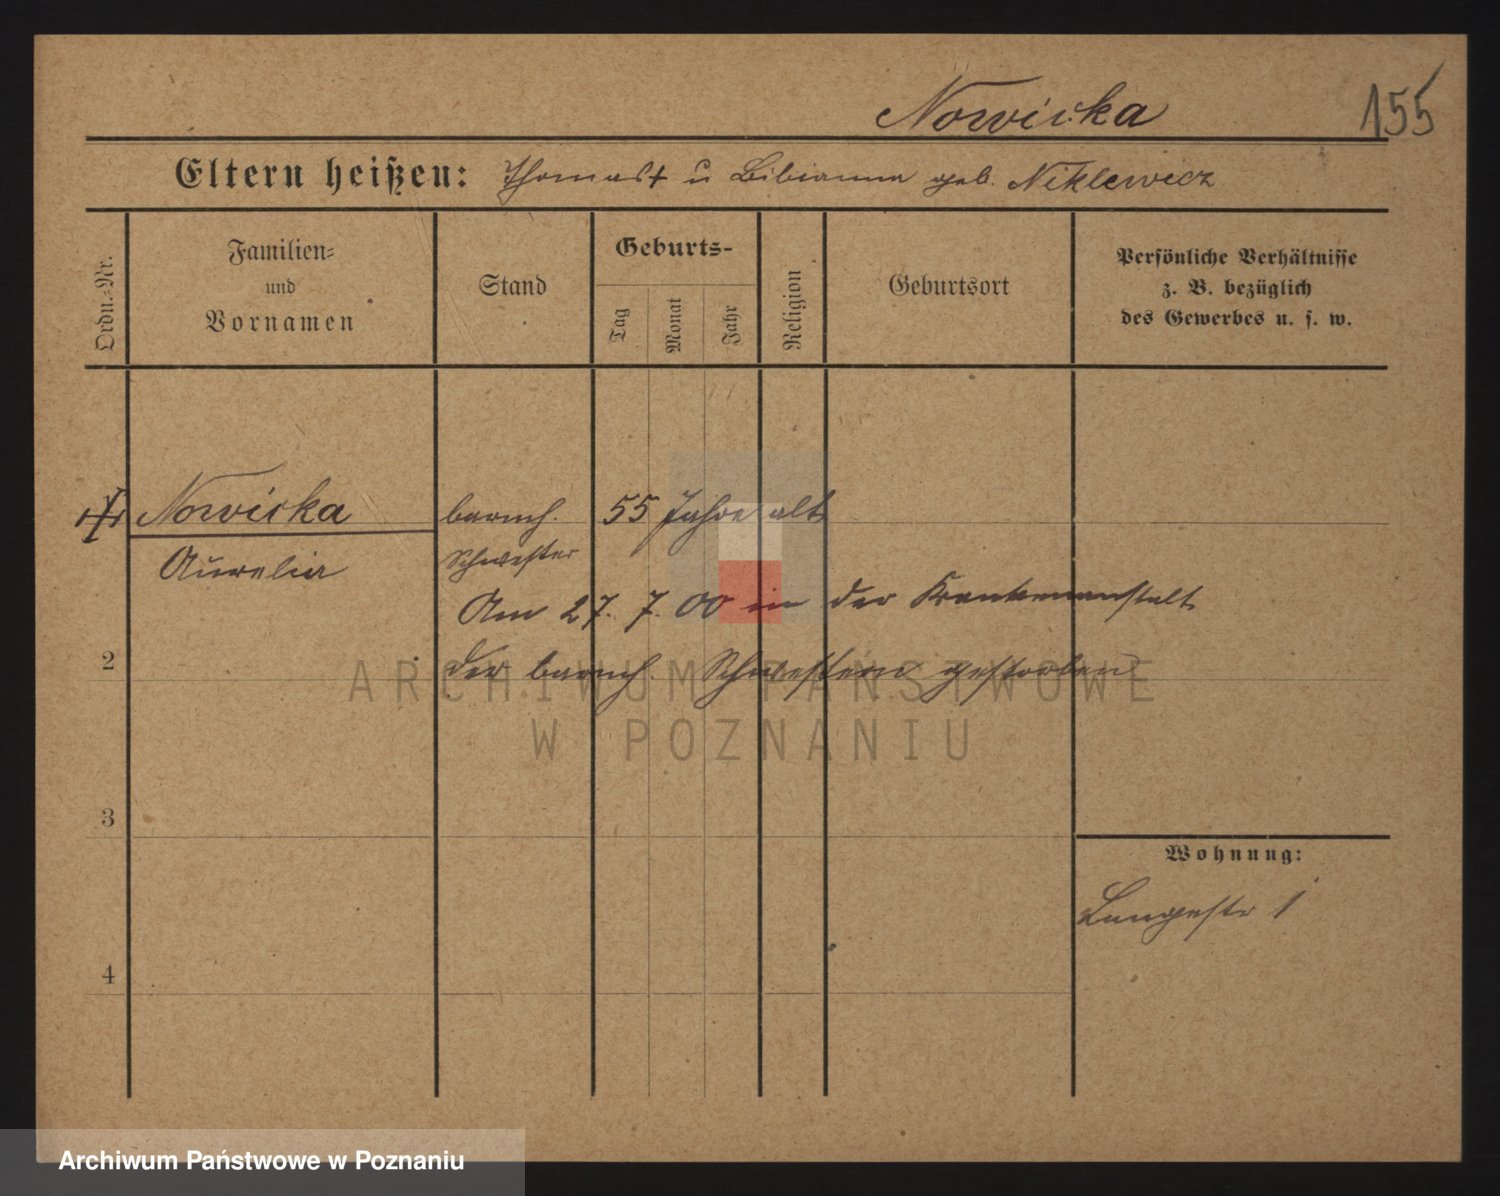 Nowicka 155
Eltern heißen: Thomas † u Bibianna geb. Niklewicz
Ordn.-Nr.
Familien-
und
Vornamen
Stand
Geburts-
Tag
Monat
Jahr
Religion
Geburtsort
Persönliche Verhältnisse
z. B. bezüglich
des Gewerbes u. s. w.
Nowicka barmh. 55 Jahre alt
Aurelia Schwester
Am 27. 7. 00 in der Krankenanstalt
2 der barmh. Schwestern gestorben
ARCHIWUM PAŃSTWOWE
W POZNANIU
3
Wohnung:
Langestr 1
4
Archiwum Państwowe w Poznaniu